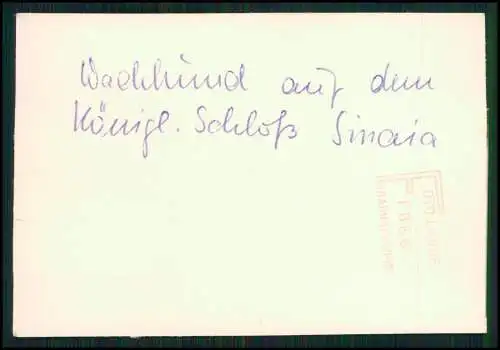 Wachhund auf dem
Königl. Schloß Sinaia